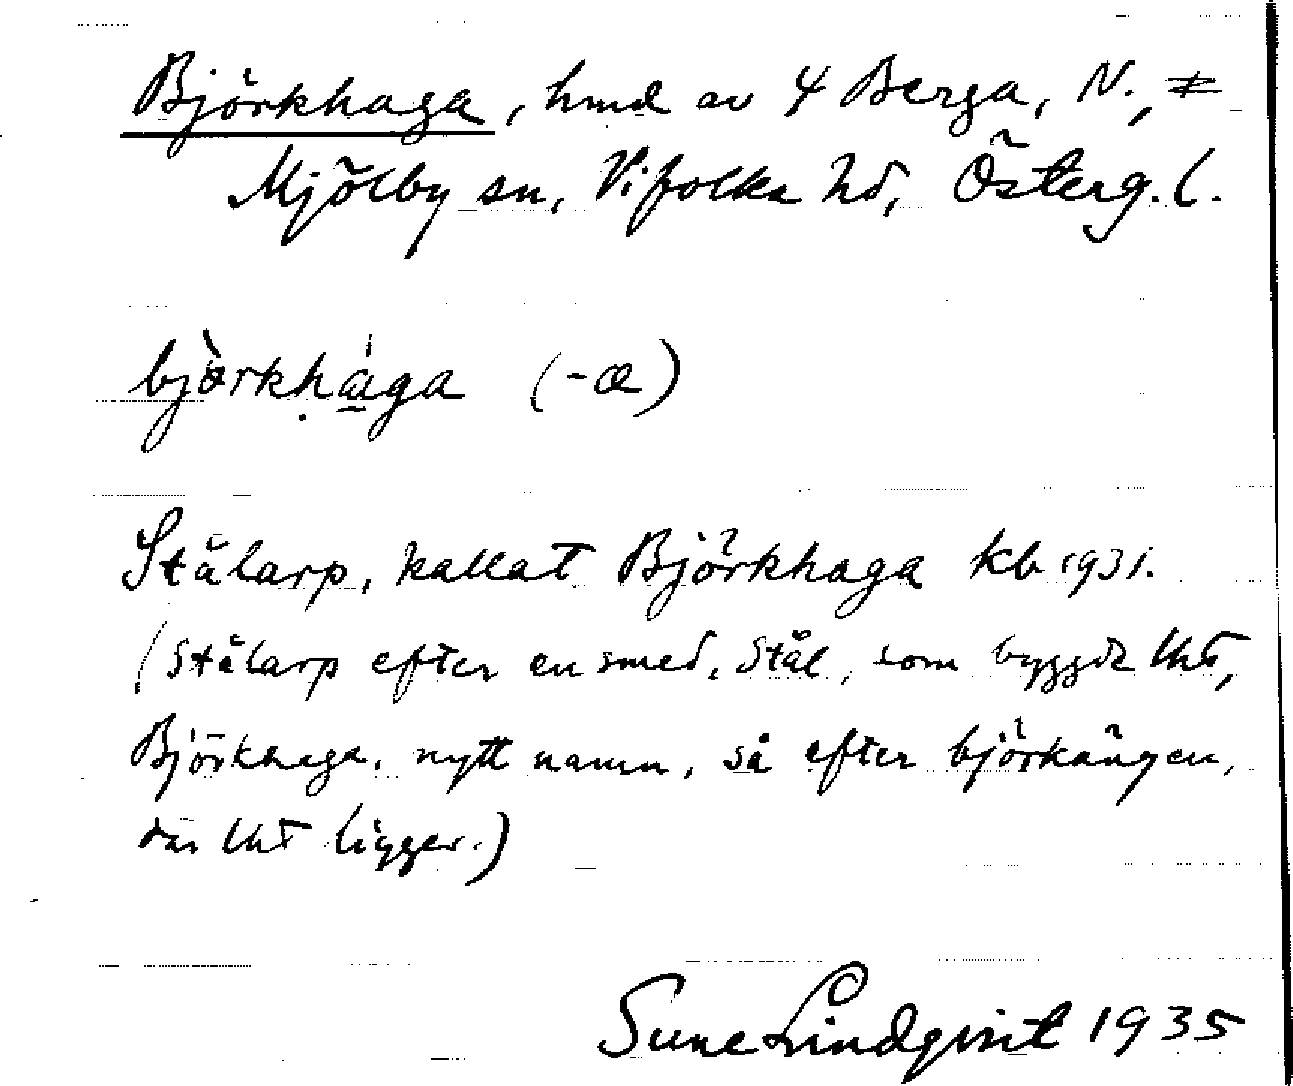 Björkhaga, hmd av 4 Berga, N., ≠
Mjölby sn, Vifolka hd, Österg. l.
bjòrkhága (-œ)
Stålarp, kallat Björkhaga kb 1931.
(Stålarp efter en smed, Stål, som byggde lht,
Björkhaga, nytt namn, så efter björkängen,
där lht ligger.)
Sune Lindqvist 1935